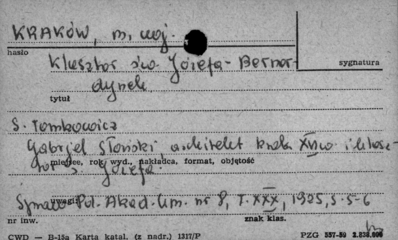 KRAKÓW, m. woj.
hasło
Klasztor św. Józefa - Bernar-
sygnatura
dynek
tytuł
S. Tomkowicz
Gabriel Słoński architekt krak. XVI w. i klasz-
tor s. Józefa.
miejsce, rok wyd., nakładca, format, objętość
Spraw. Pol. Akad. Um. nr 8, T. XXX, 1925, s. 5-6
nr inw.
znak klas.
CWD — B-15a Karta katal. (z nadr.) 1317/P
PZG 557-59